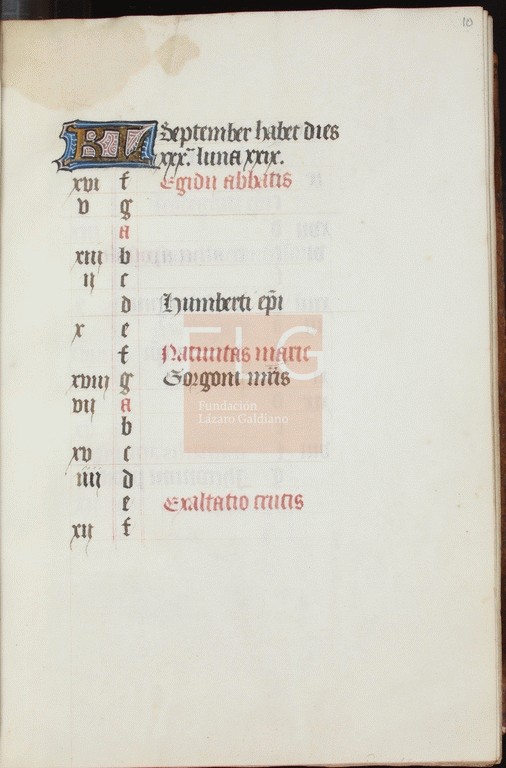 10
KL September habet dies
xxx. luna xxix.
xvi f Egidii abbatis
v g
a
xiii b
ii c
d Humberti ep̄i
x e
f Natiuitas marie
xviii g Gorgoni mr̄is
vii a
b
xv c
iiii d
e Exaltatio crucis
xii f
FLG
Fundación
Lázaro Galdiano